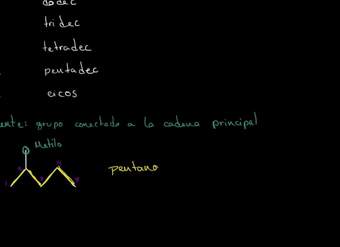 dodec
tridec
tetradec
pentadec
eicos
grupo conectado a la cadena principal
Metilo
pentano